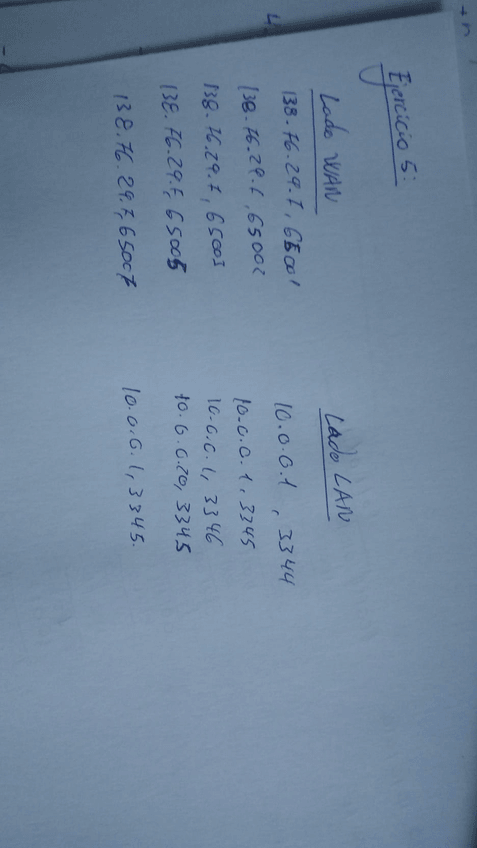 Ejercicio 5:
Lado WAN Lado LAN
138.76.29.7, 65001 10.0.0.1, 3344
138.76.29.7, 65002 10.0.0.1, 3345
138.76.29.7, 65003 10.0.0.1, 3346
138.76.29.7, 65005 10.0.0.20, 3345
138.76.29.7, 65007 10.0.0.1, 3345.